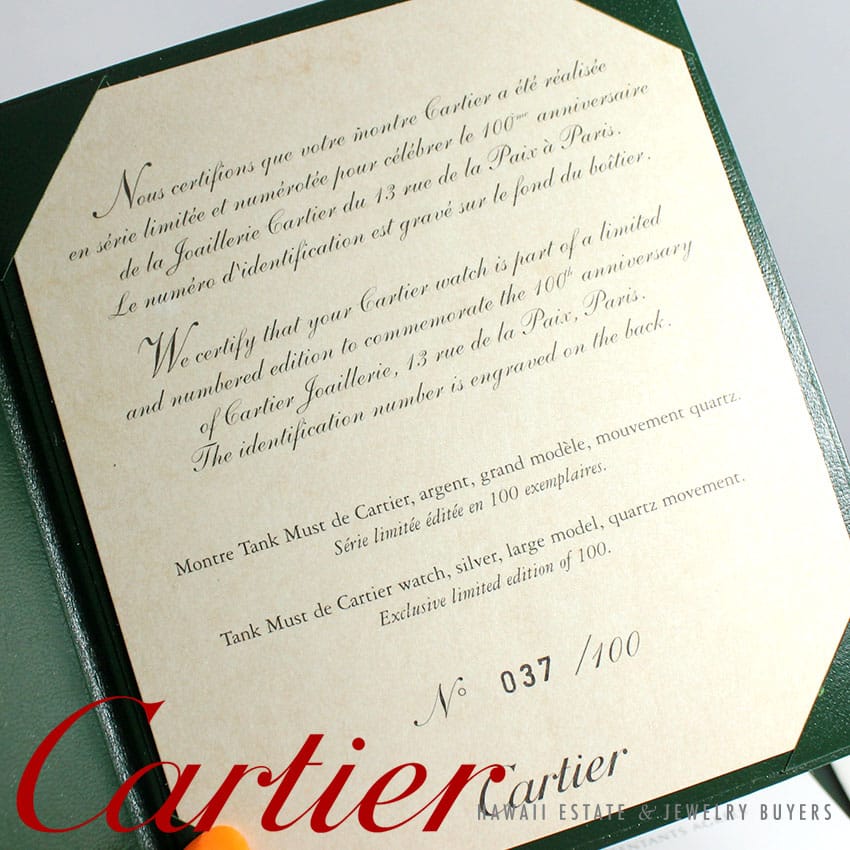 Nous certifions que votre montre Cartier a été réalisée
en série limitée et numérotée pour célébrer le 100ème anniversaire
de la Joaillerie Cartier du 13 rue de la Paix à Paris.
Le numéro d'identification est gravé sur le fond du boîtier.
We certify that your Cartier watch is part of a limited
and numbered edition to commemorate the 100th anniversary
of Cartier Joaillerie, 13 rue de la Paix, Paris.
The identification number is engraved on the back.
Montre Tank Must de Cartier, argent, grand modèle, mouvement quartz.
Série limitée éditée en 100 exemplaires.
Tank Must de Cartier watch, silver, large model, quartz movement.
Exclusive limited edition of 100.
N° 037 /100
Cartier
Cartier
HAWAII ESTATE & JEWELRY BUYERS